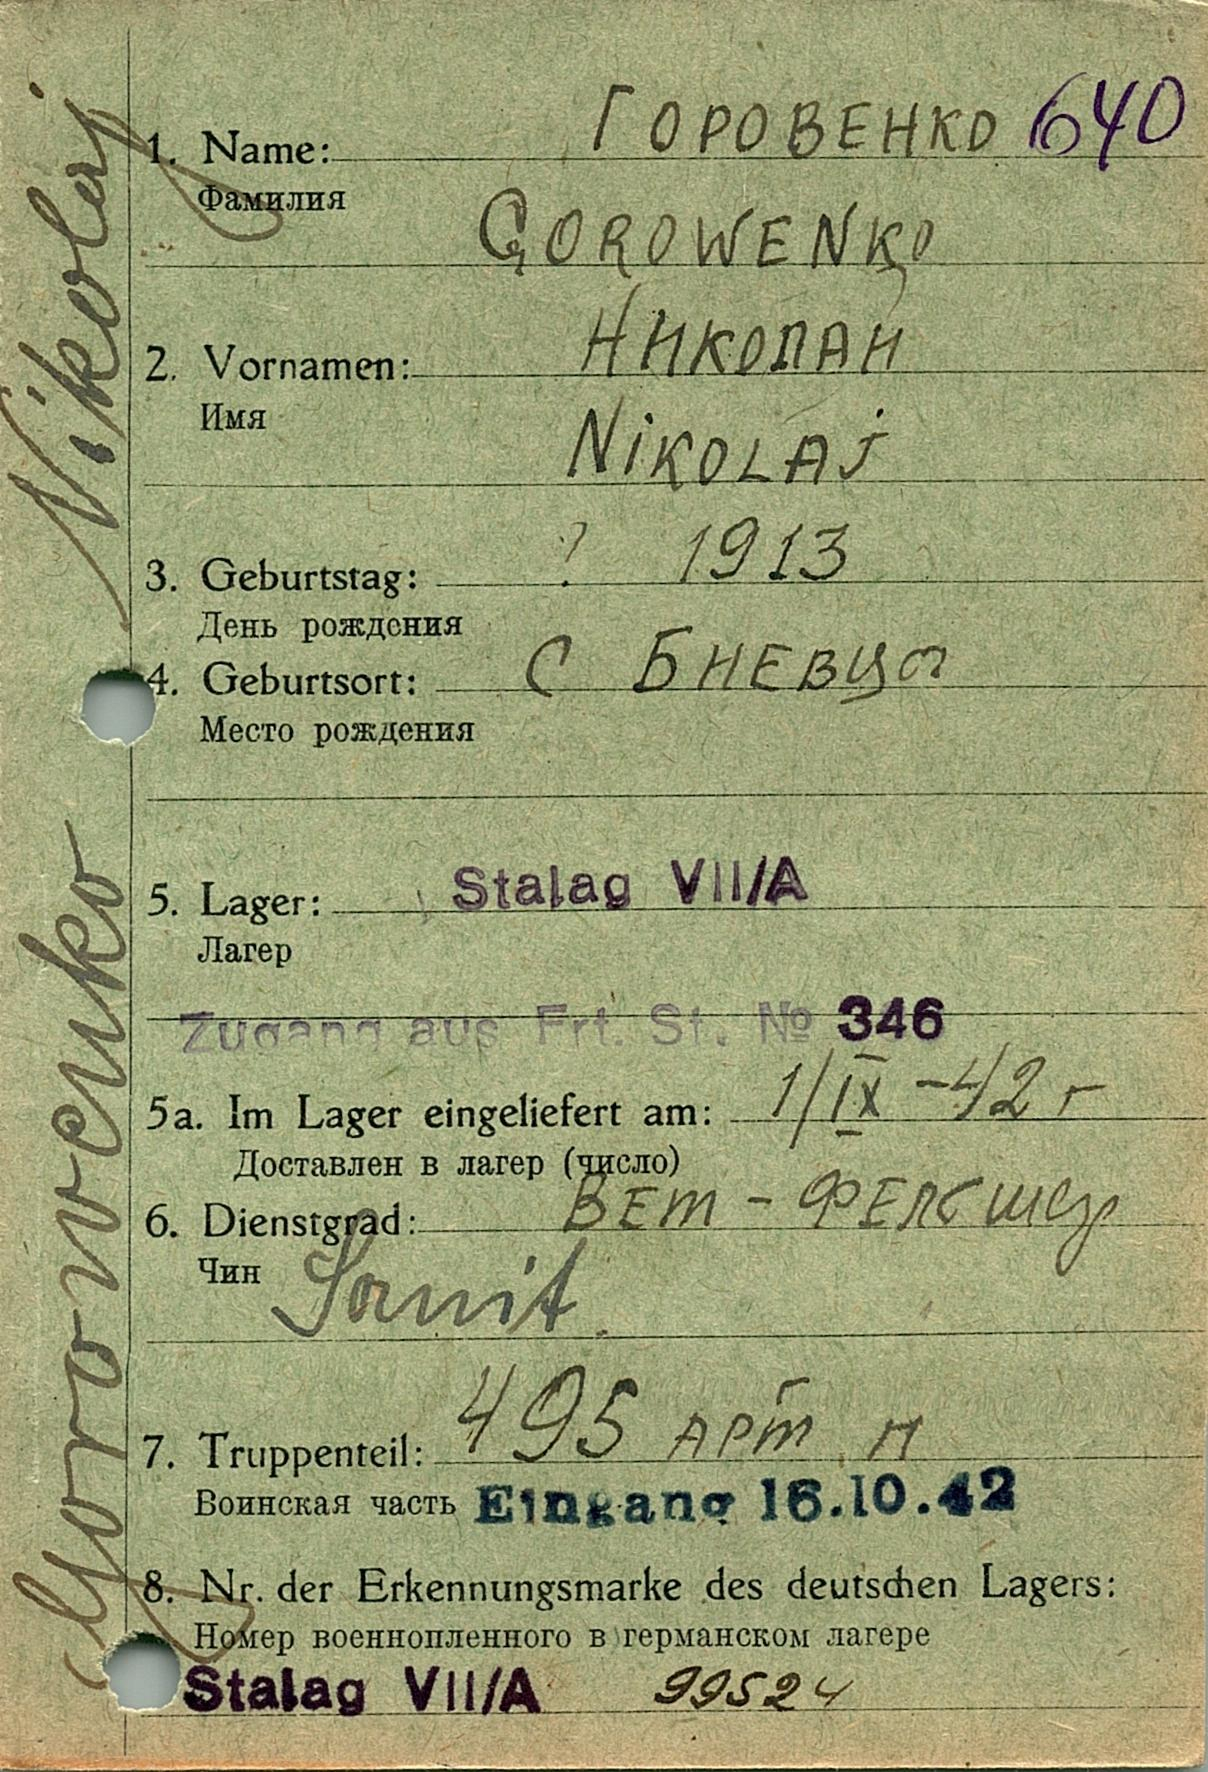 Gorovenko Nikolaj
1. Name: ГОРОВЕНКО 640
Фамилия
GOROWENKO
2. Vornamen: НИКОЛАИ
Имя
NiKOLAJ
3. Geburtstag: ? 1913
День рождения
4. Geburtsort: С БНЕВЦЫ
Место рождения
5. Lager: Stalag VII/A
Лагер
Zugang aus Frt. St. № 346
5a. Im Lager eingeliefert am: 1/IX -42 г
Доставлен в лагер (число)
6. Dienstgrad: ВЕТ - ФЕЛЬШЕР
Чин
Sanit
7. Truppenteil: 495 АРТ П
Воинская часть Eingang 16.10.42
8. Nr. der Erkennungsmarke des deutschen Lagers:
Номер военнопленного в германском лагере
Stalag VII/A 99524